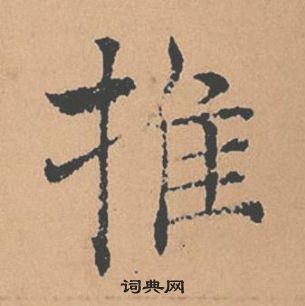 推
词典网